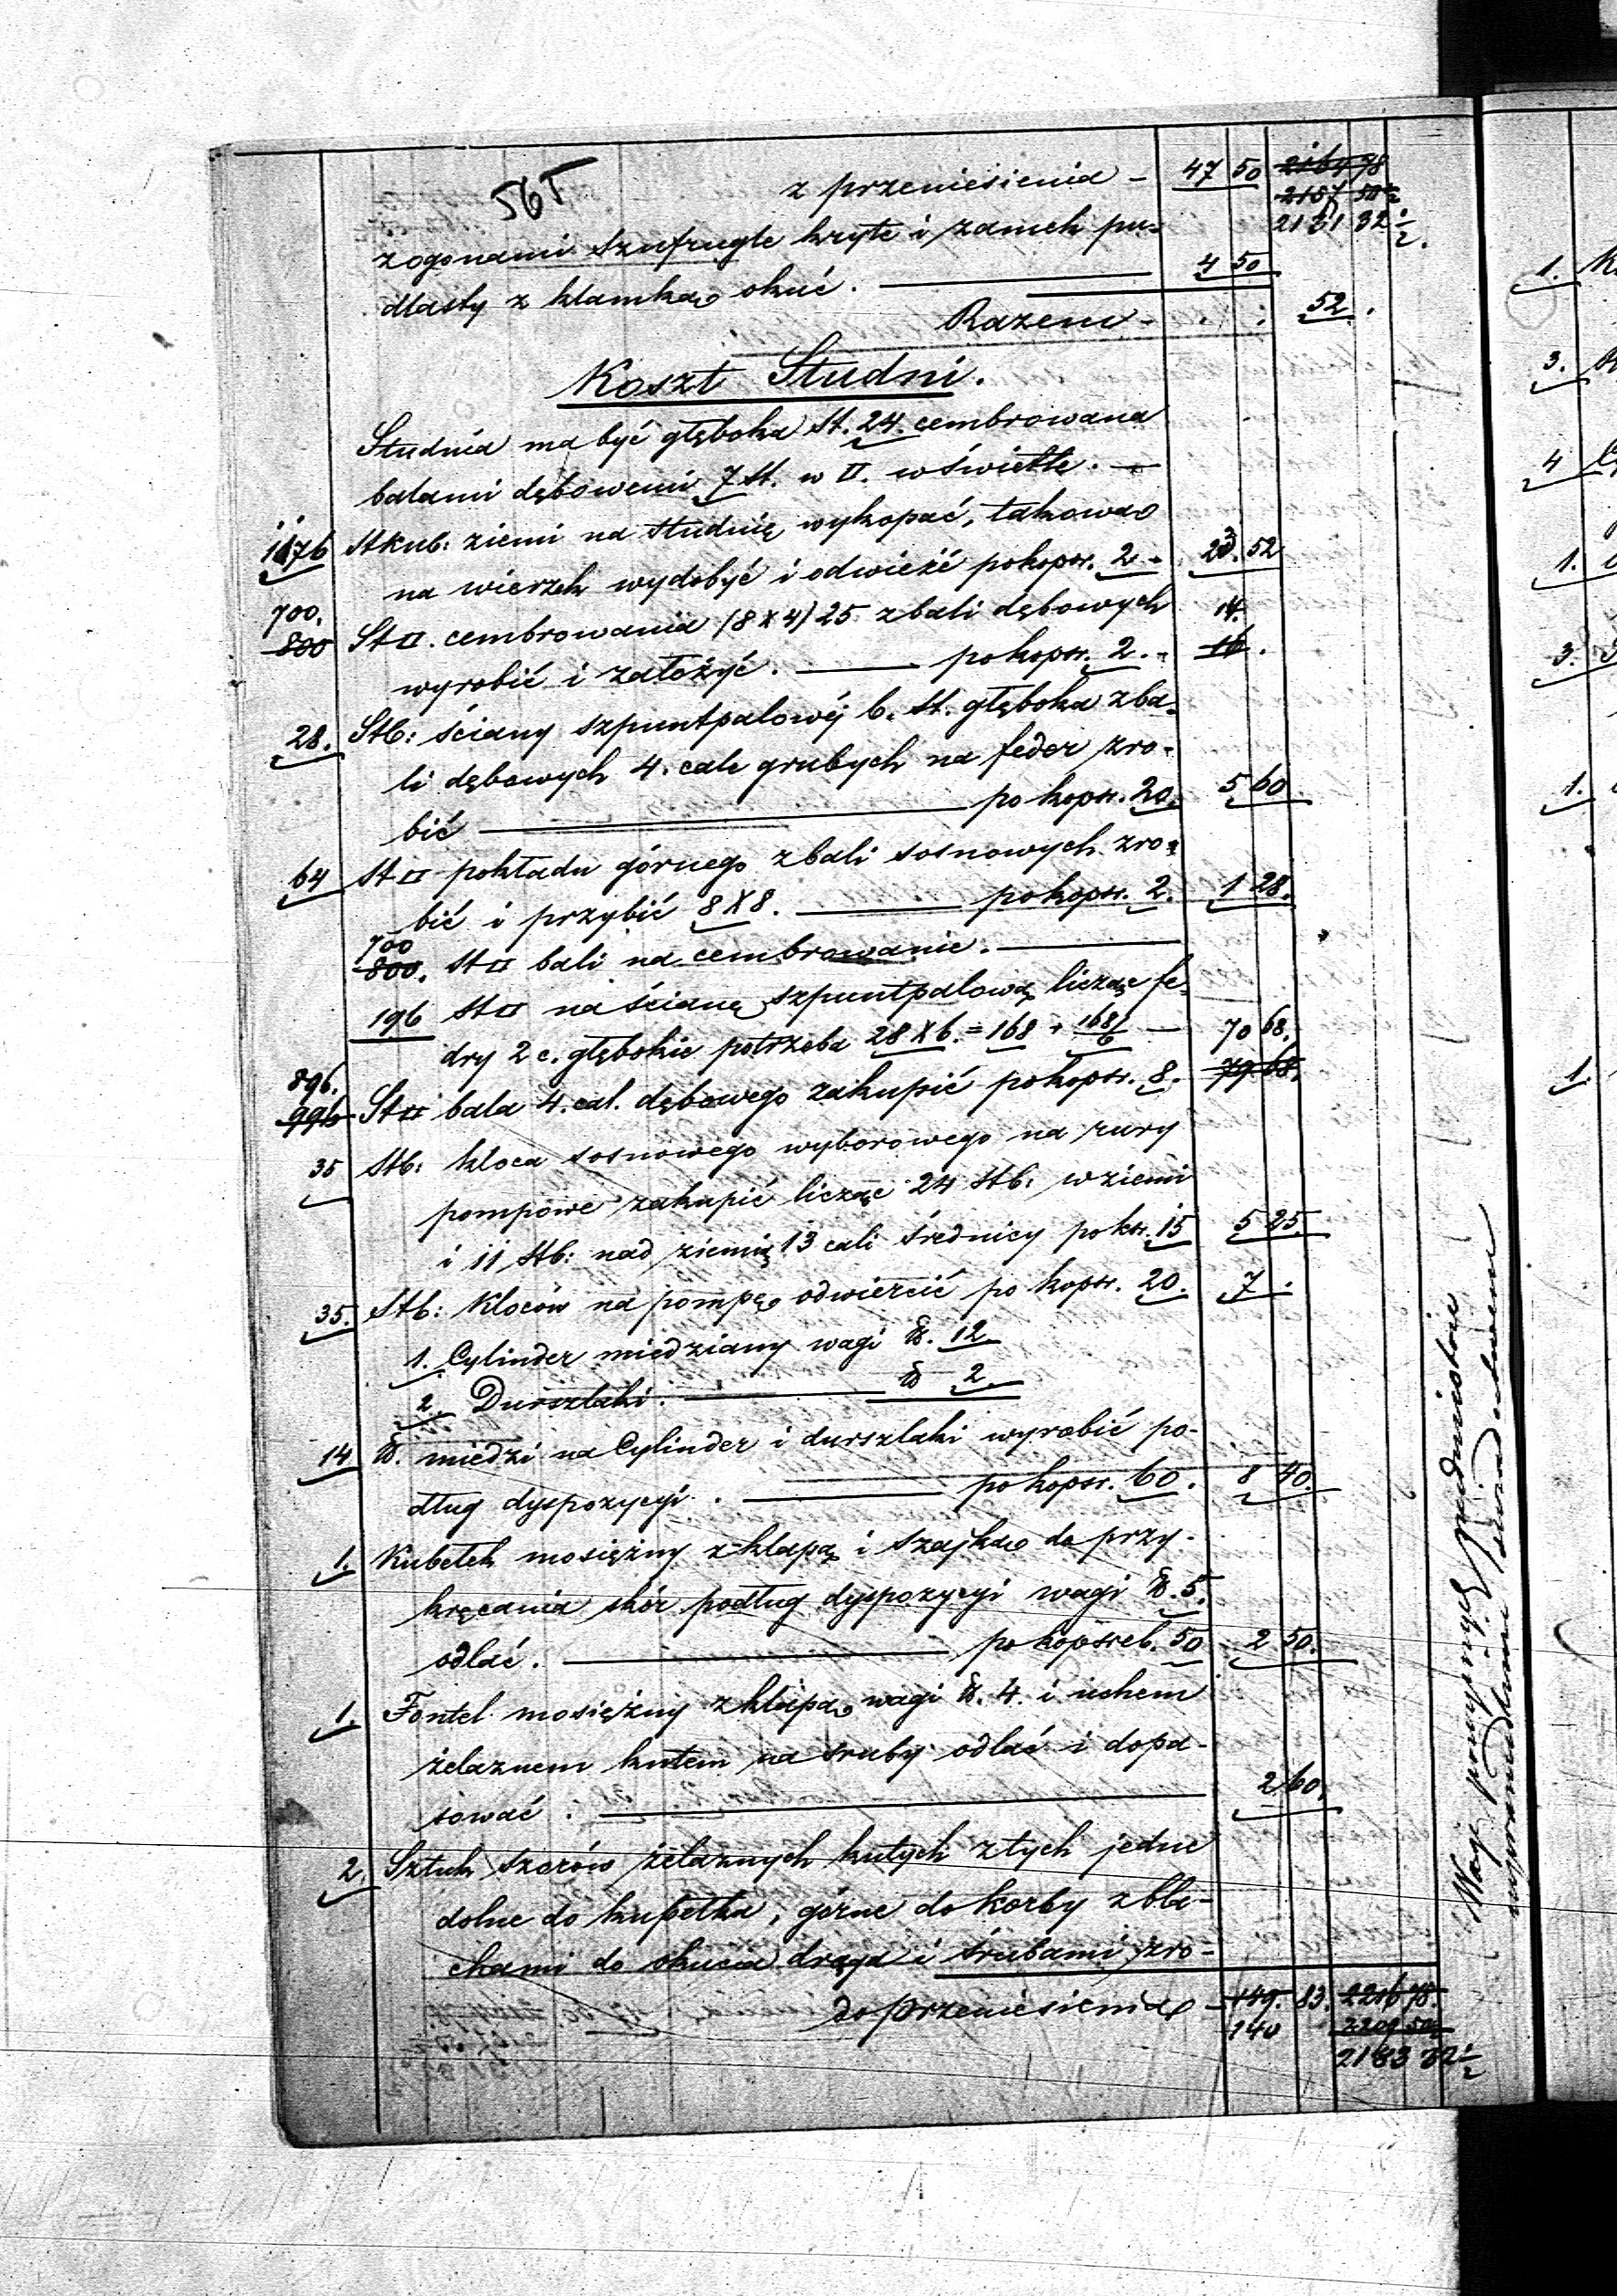 565
z przeniesienia - 47 50 2164 78
2157 50½
zogonami szufrugle kryte i zamek pu- 2131 32½.
dlasty z klamką okuć. 4 50
Razem - . : 52.
Koszt Studni.
Studnia ma być głęboka St. 24. cembrowana
balami dębowemi 7 St. w □. w świetle. -
1176 Stkub: ziemi na studnię wykopać, takową
na wierzch wydobyć i odwieźć pokopsr. 2 - 23. 52
700.
800 St□. cembrowania (8X4) 25 zbali dębowych 14.
wyrobić i założyć. pokopsr. 2. - 16.
28. Stb: ściany szpuntpalowéj 6. St. głęboka zba-
li dębowych 4. cale grubych na feder zro-
bić pokopsr. 20. 5 60
64 St□ pokładu górnego zbali sosnowych zro-
bić i przybić 8X8. pokopsr. 2. 1 28.
700
800. St□ bali na cembrowanie.
196 St□ na ścianę szpuntpalową licząc fe-
dry 2 c. głębokie potrzeba 28X6.=168 + 168/6 - 70 68.
896.
996 St□ bala 4. cal. dębowego zakupić pokopsr. 8. 79 68.
35 Stb: kloca sosnowego wyborowego na rury
pompowe zakupić licząc 24 Stb: w ziemi
i 11 Stb: nad ziemią 13 cali średnicy po ksr. 15 5 25.
35. Stb: Kloców na pompę odwiercić po kopsr. 20. 7 .
1. Cylinder miedziany wagi ℔. 12
2. Durszlaki. ℔ 2.
14 ℔. miedzi na Cylinder i durszlaki wyrobić po-
dług dyspozycyi. pokopsr. 60. 8 40.
1. Kubełek mosiężny z klapą i szajką do przy-
kręcania skór podług dyspozycyi wagi ℔. 5.
odlać. po kopsreb. 50 2 50.
1. Fontel mosiężny z klapą wagi ℔. 4. i uchem
żelaznem kutem na śruby odlać i dopa-
sować. 2 60.
2. Sztuk szarów żelaznych kutych z tych jedne
dolne do kubełka, górne do korby z bla-
chami do okucia drąga i śrubami zro-
do przeniesienia - 149. 83. 2216 78.
140 2209 50½
2183 32½